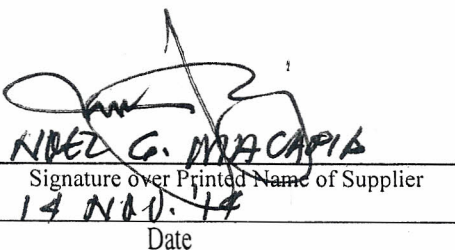 NOEL G. MACAPIA
Signature over Printed Name of Supplier
14 NOV. '14
Date